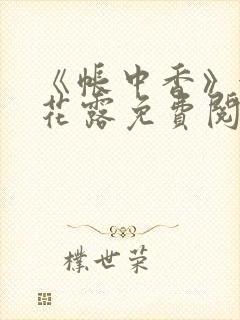 《帐中香》
花露免費閱
樸世荣